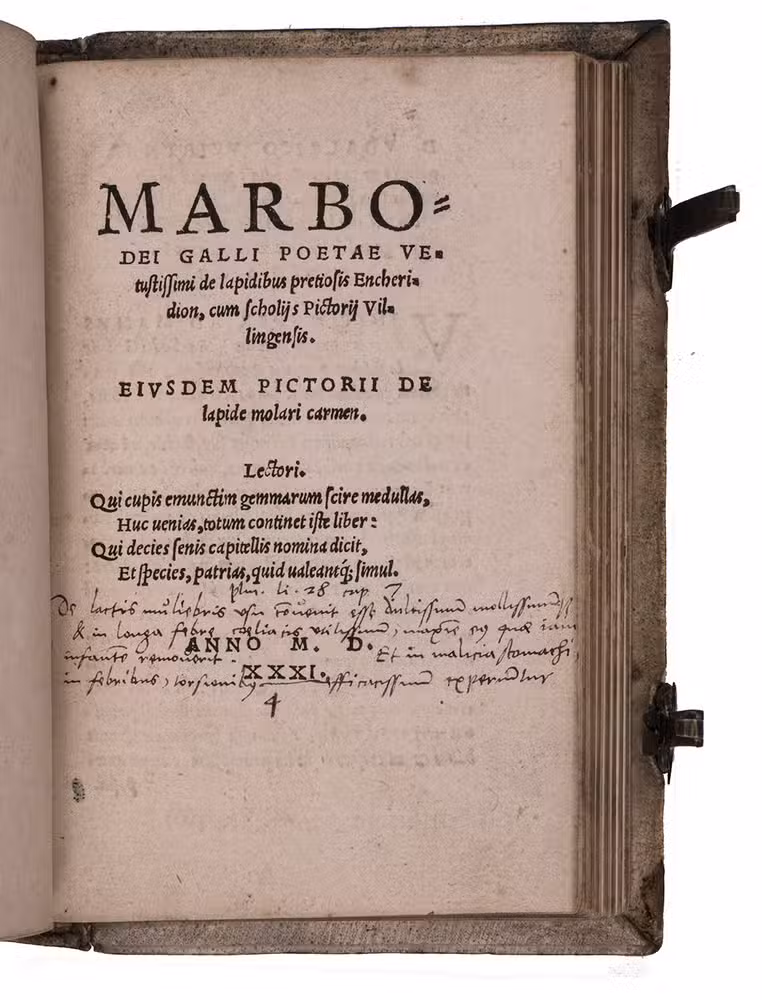 MARBO⸗
DEI GALLI POETAE VE⸗
tuſtiſſimi de lapidibus pretioſis Encheri⸗
dion, cum ſcholijs Pictorij Vil⸗
lingenſis.
EIVSDEM PICTORII DE
lapide molari carmen.
Lectori.
Qui cupis emunctim gemmarum ſcire medullas,
Huc uenias, totum continet iſte liber:
Qui decies ſenis capitellis nomina dicit,
Et ſpecies, patrias, quid ualeantq́; ſimul.
plin. li. 28 cap 7
De lactis muliebris usu esse dulcissimum mollissimumq
& in longa febre utilissimum, quae iam
ANNO M. D.
infante removerit. Et in malicia stomachi,
XXXI.
in febribus, torsionibus efficacissimum
4